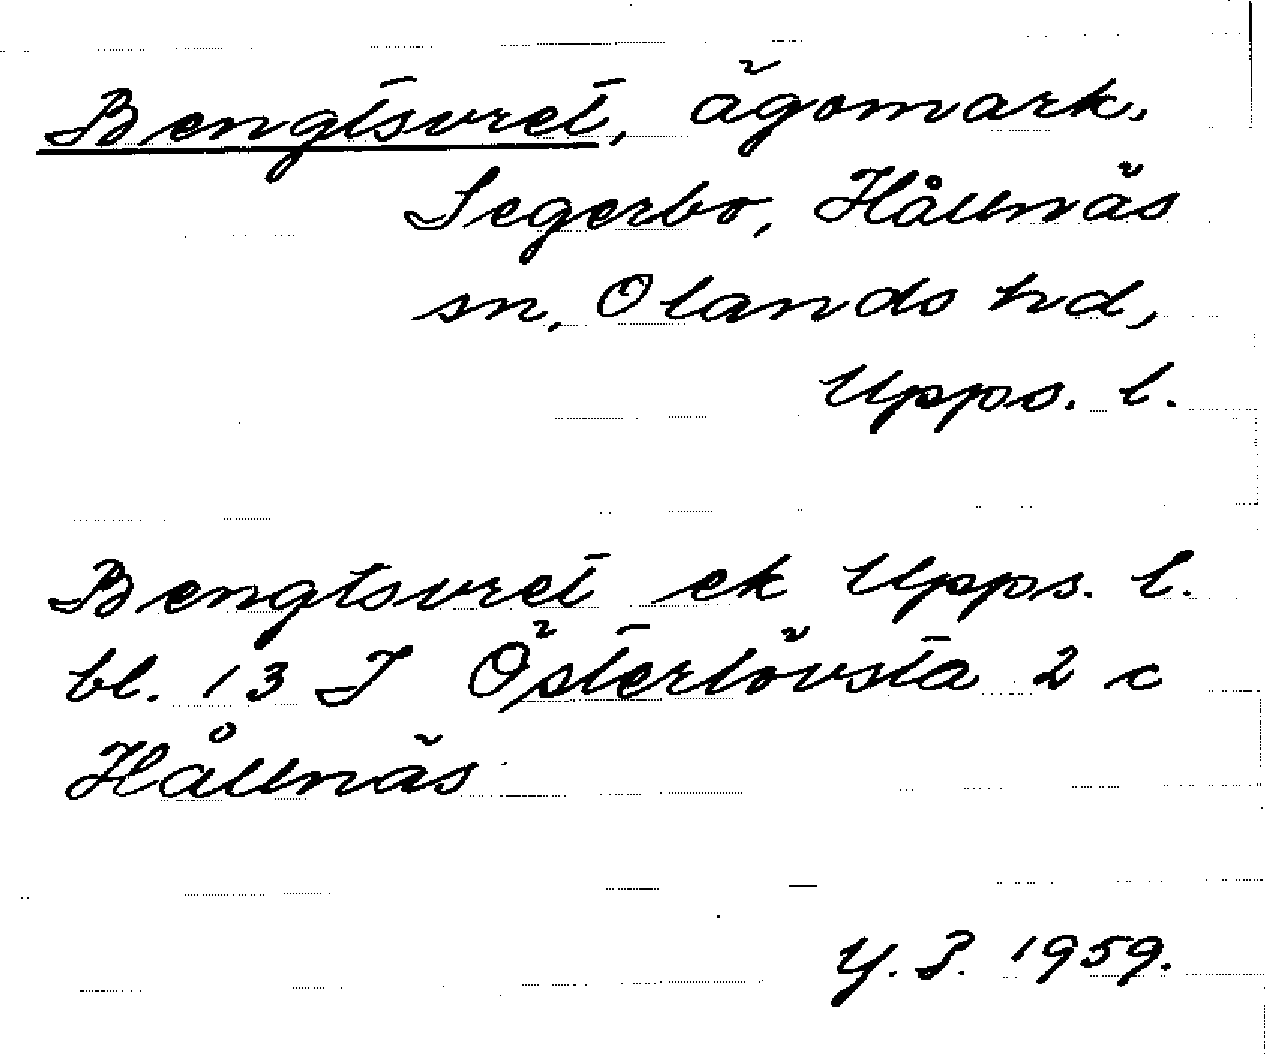 Bengtsvret, ägomark.
Segerbo, Hållnäs
sn, Olands hd,
Upps. l.
Bengtsvret ek Upps. l.
bl. 13 I Österlövsta 2 c
Hållnäs
Y. P. 1959.